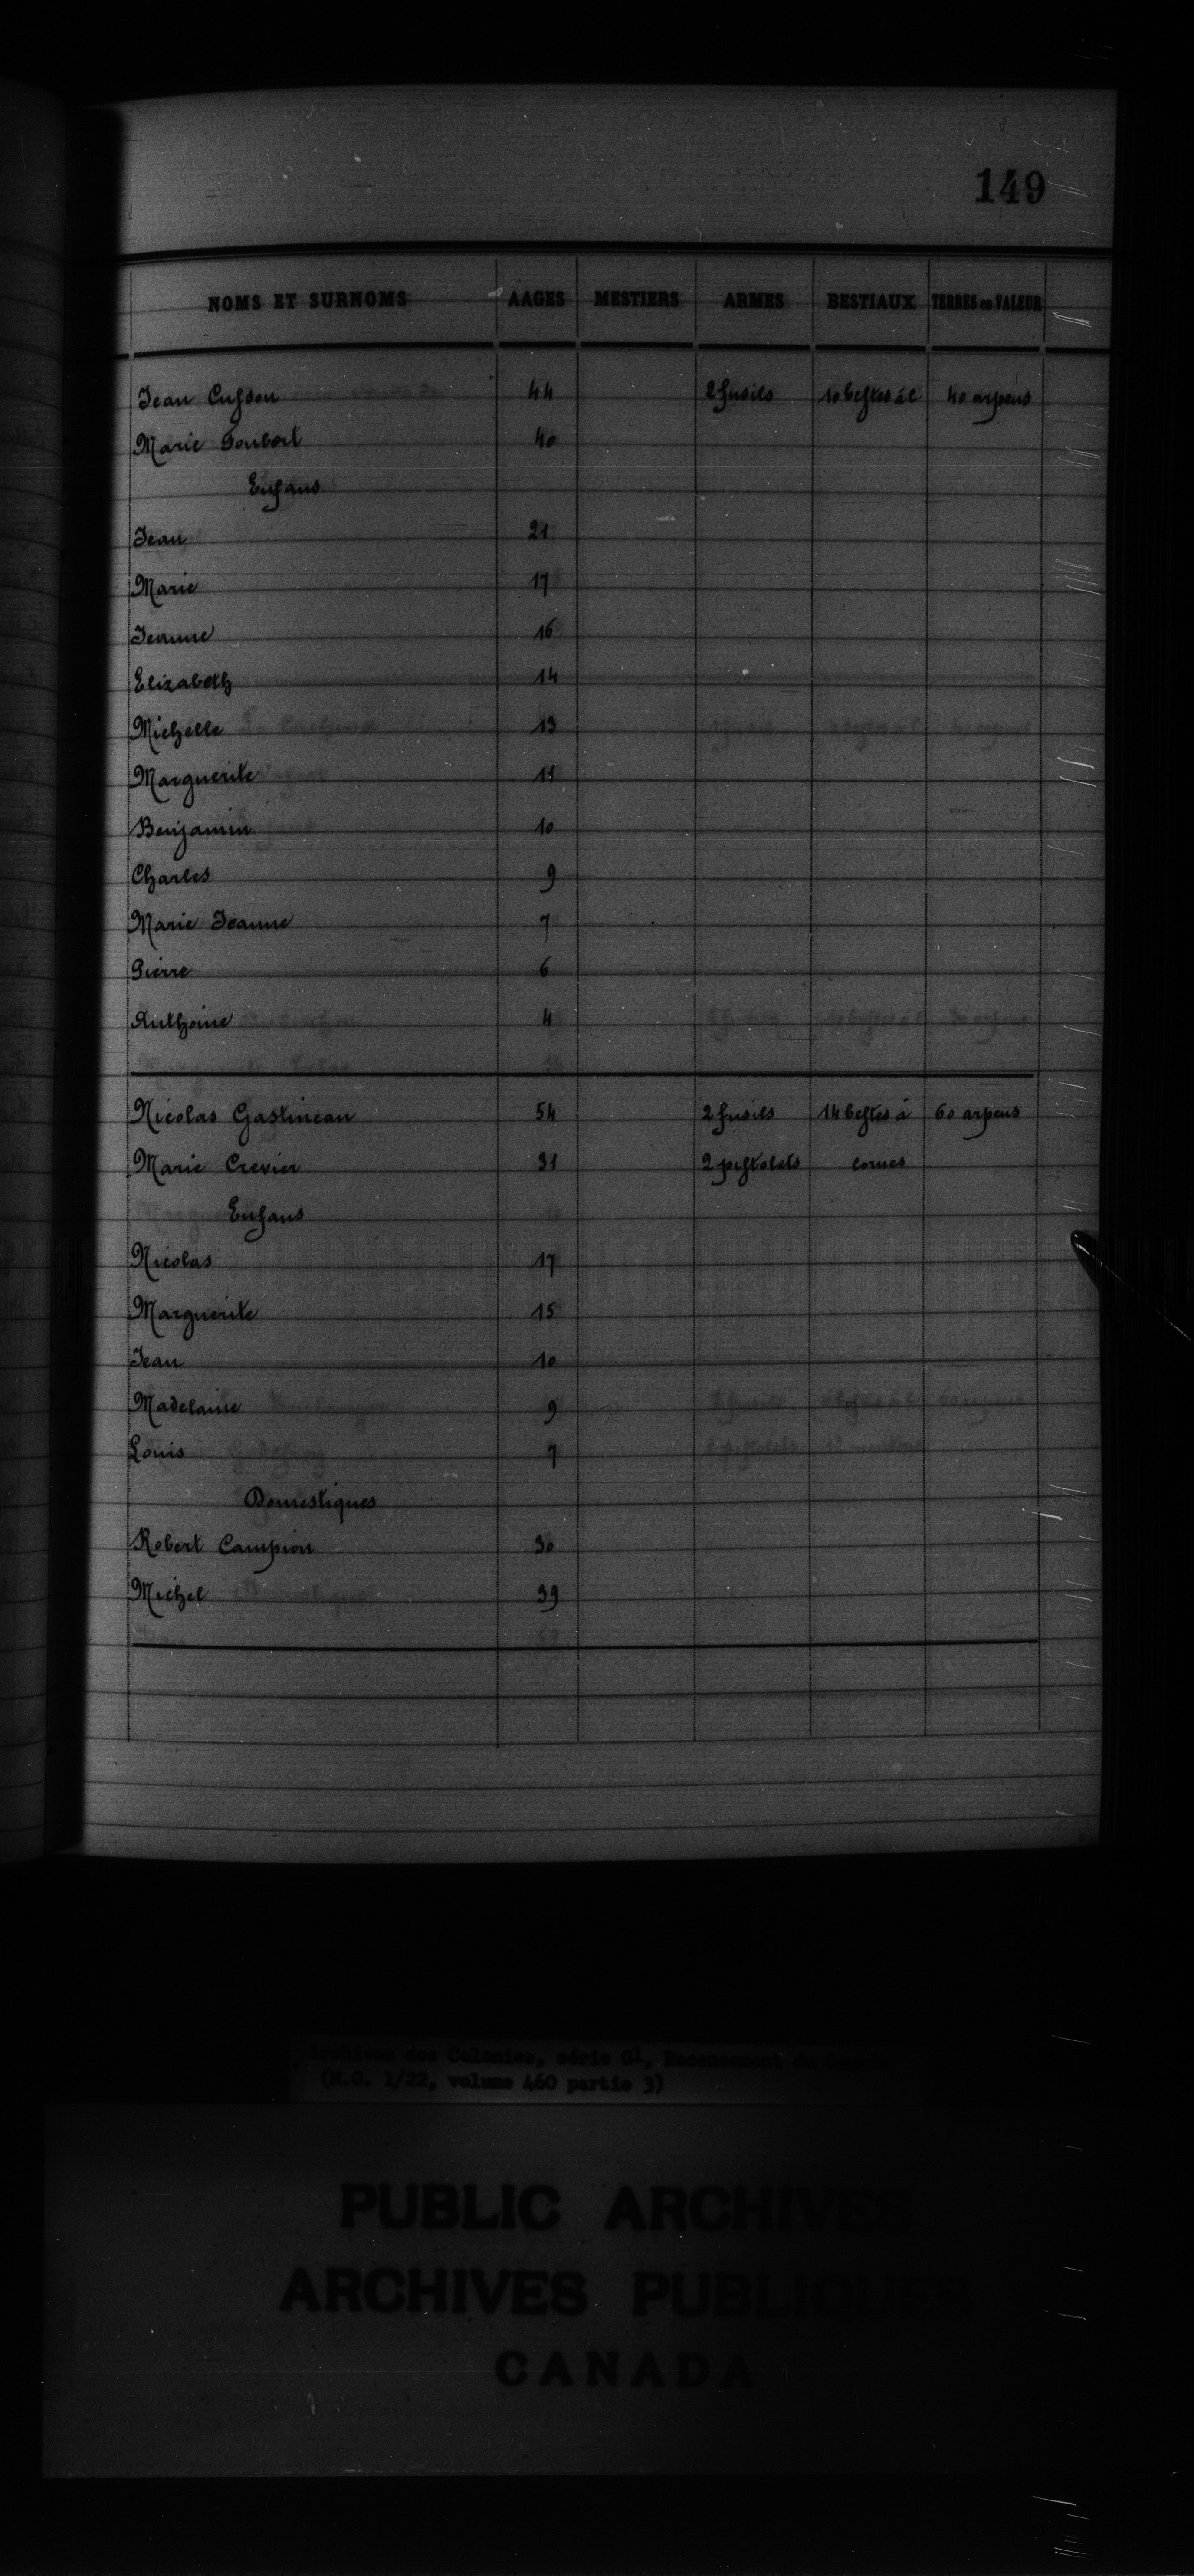 149
NOMS ET SURNOMS AAGES MESTIERS ARMES BESTIAUX TERRES en VALEUR
Jean Cusson 44 2 fusils 10 bestes à c. 40 arpens
Marie Foubert 40
Enfans
Jean 21
Marie 17
Jeanne 16
Elizabeth 14
Michelle 13
Marguerite 11
Benjamin 10
Charles 9
Marie Jeanne 7
Pierre 6
Anthoine 4
Nicolas Gastineau 54 2 fusils 14 bestes à 60 arpens
Marie Crevier 31 2 pistolets cornes
Enfans
Nicolas 17
Marguerite 15
Jean 10
Madelaine 9
Louis 7
Domestiques
Robert Campion 30
Michel 39
Archives des Colonies, série G1, Recensement du
(M.G. 1/22, volume 460 partie 3)
PUBLIC ARCHIVES
ARCHIVES PUBLIQUES
CANADA